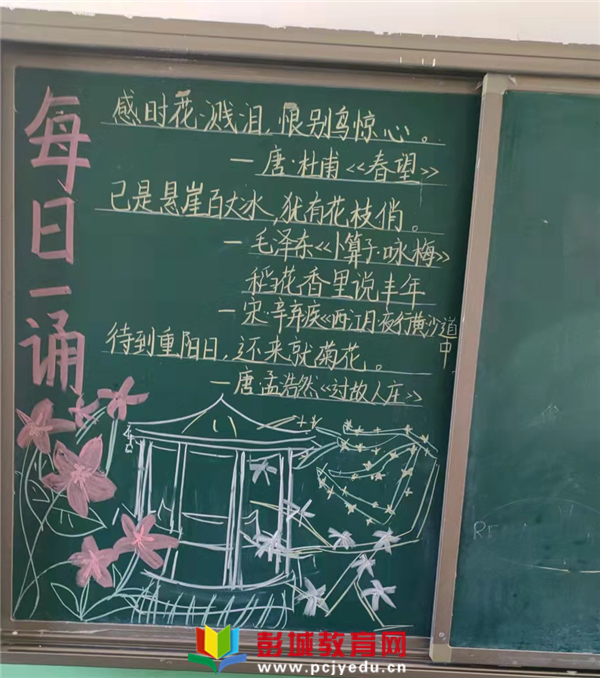 每日一诵
感时花溅泪,恨别鸟惊心。
—唐·杜甫《春望》
已是悬崖百丈冰,犹有花枝俏。
—毛泽东《卜算子·咏梅》
稻花香里说丰年
—宋·辛弃疾《西江月夜行黄沙道中
待到重阳日,还来就菊花。
—唐·孟浩然《过故人庄》
彭城教育网
www.pcjyedu.cn